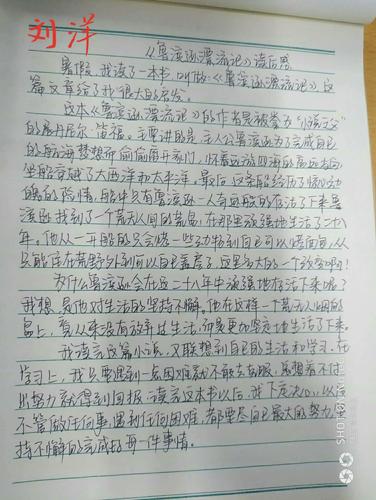 刘洋
《鲁滨逊漂流记》读后感
暑假,我读了一本书,叫做《鲁滨逊漂流记》这
篇文章给了我很大的启发。
这本《鲁滨逊漂流记》的作者是被誉为"小说之父"
的丹尼尔·笛福。主要讲的是:主人公鲁滨逊为了完成自己
的航海梦想而偷偷离开家门,怀着远游四海的高远志向,
坐船穿越了大西洋和太平洋。最后,这条船经历了惊心动
魄的险情,船中只有鲁滨逊一人奇迹般的存活了下来鲁
滨逊找到了个荒无人间的荒岛,在那里顽强地生活了二十八
年。他从一开始的只会做一些到自己可以烤面包,从
只能住在荒野外到可以自己盖房子,这是多大的一个改变啊!
为什么鲁滨逊会在这二十八年中顽强地存活下来呢?
我想,是他对生活的坚持不懈。他在这样一个荒无人烟的
岛上,有从来没有放弃过生活,而是更加坚定地生活了下来。
我读完这篇小说,又联想到自己的生活和学习。在
学习上,我只要遇到一点困难就不敢去克服,总想着不付
出努力就得到回报。读完这本书以后,我下定决心,以后
不管做任何事,遇到任何困难,都要尽自己最大的努力,坚
持不懈的完成好每一件事情。
SHOT ON